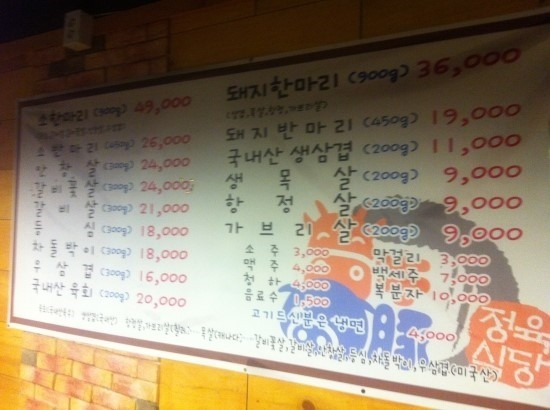 소한마리 (900g) 49,000
소반마리 (450g) 26,000
안창살 (300g) 24,000
갈비꽃살 (300g) 24,000
갈비살 (300g) 21,000
등심 (300g) 18,000
차돌박이 (300g) 18,000
우삼겹 (300g) 16,000
국내산육회 (200g) 20,000
돼지한마리 (900g) 36,000
(생삼겹,목살,항정,가브리살)
돼지반마리 (450g) 19,000
국내산생삼겹 (200g) 11,000
생목살 (200g) 9,000
항정살 (200g) 9,000
가브리살 (200g) 9,000
소주 3,000
맥주 4,000
청하 4,000
음료수 1,500
막걸리 3,000
백세주 7,000
복분자 10,000
고기드신분은 냉면 4,000
목살(캐나다) 갈비꽃살,갈비살,안창살,등심,차돌박이,우삼겹(미국산)
정육
식당